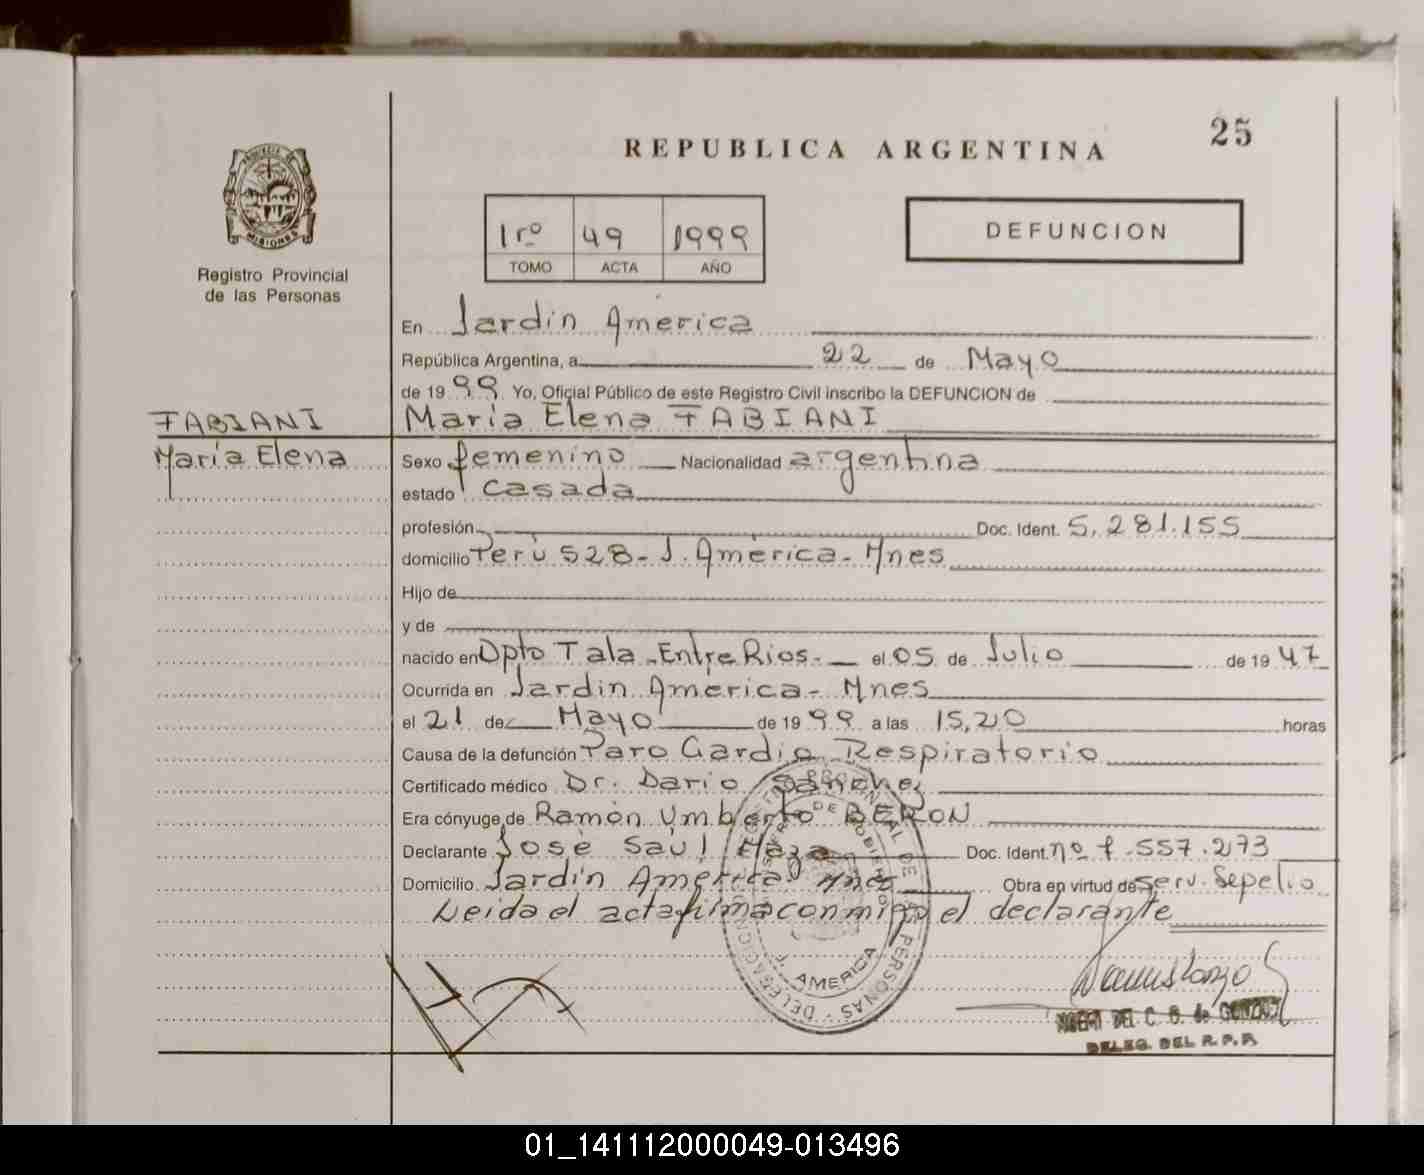 25
REPUBLICA ARGENTINA
PROVINCIA DE
MISIONES
Registro Provincial
de las Personas
1rº 49 1999
TOMO ACTA AÑO
DEFUNCION
En Jardín América
República Argentina, a 22 de Mayo
de 1999 Yo, Oficial Público de este Registro Civil inscribo la DEFUNCION de
FABIANI
María Elena FABIANI
María Elena
Sexo femenino Nacionalidad argentina
estado casada
profesión Doc. Ident. 5,281.155
domicilio Perú 528- J. América- Mnes
Hijo de
y de
nacido en Dpto Tala -Entre Rios- el 05 de Julio de 1947
Ocurrida en Jardín América- Mnes
el 21 de Mayo de 1999 a las 15,20 horas
Causa de la defunción Paro Cardio Respiratorio
Certificado médico Dr. Dario Sanchez
Era cónyuge de Ramón Umberto BERON
Declarante José Saúl Meza Doc. Ident. nº 7.557.273
Domicilio Jardín América Mnes Obra en virtud de Serv. Sepelio
Leida el acta firma conmigo el declarante
J. AMERICA
DELEGACION
PERSONAS
DEL C. B. de
DELEG. DEL R.P.P.
01_141112000049-013496